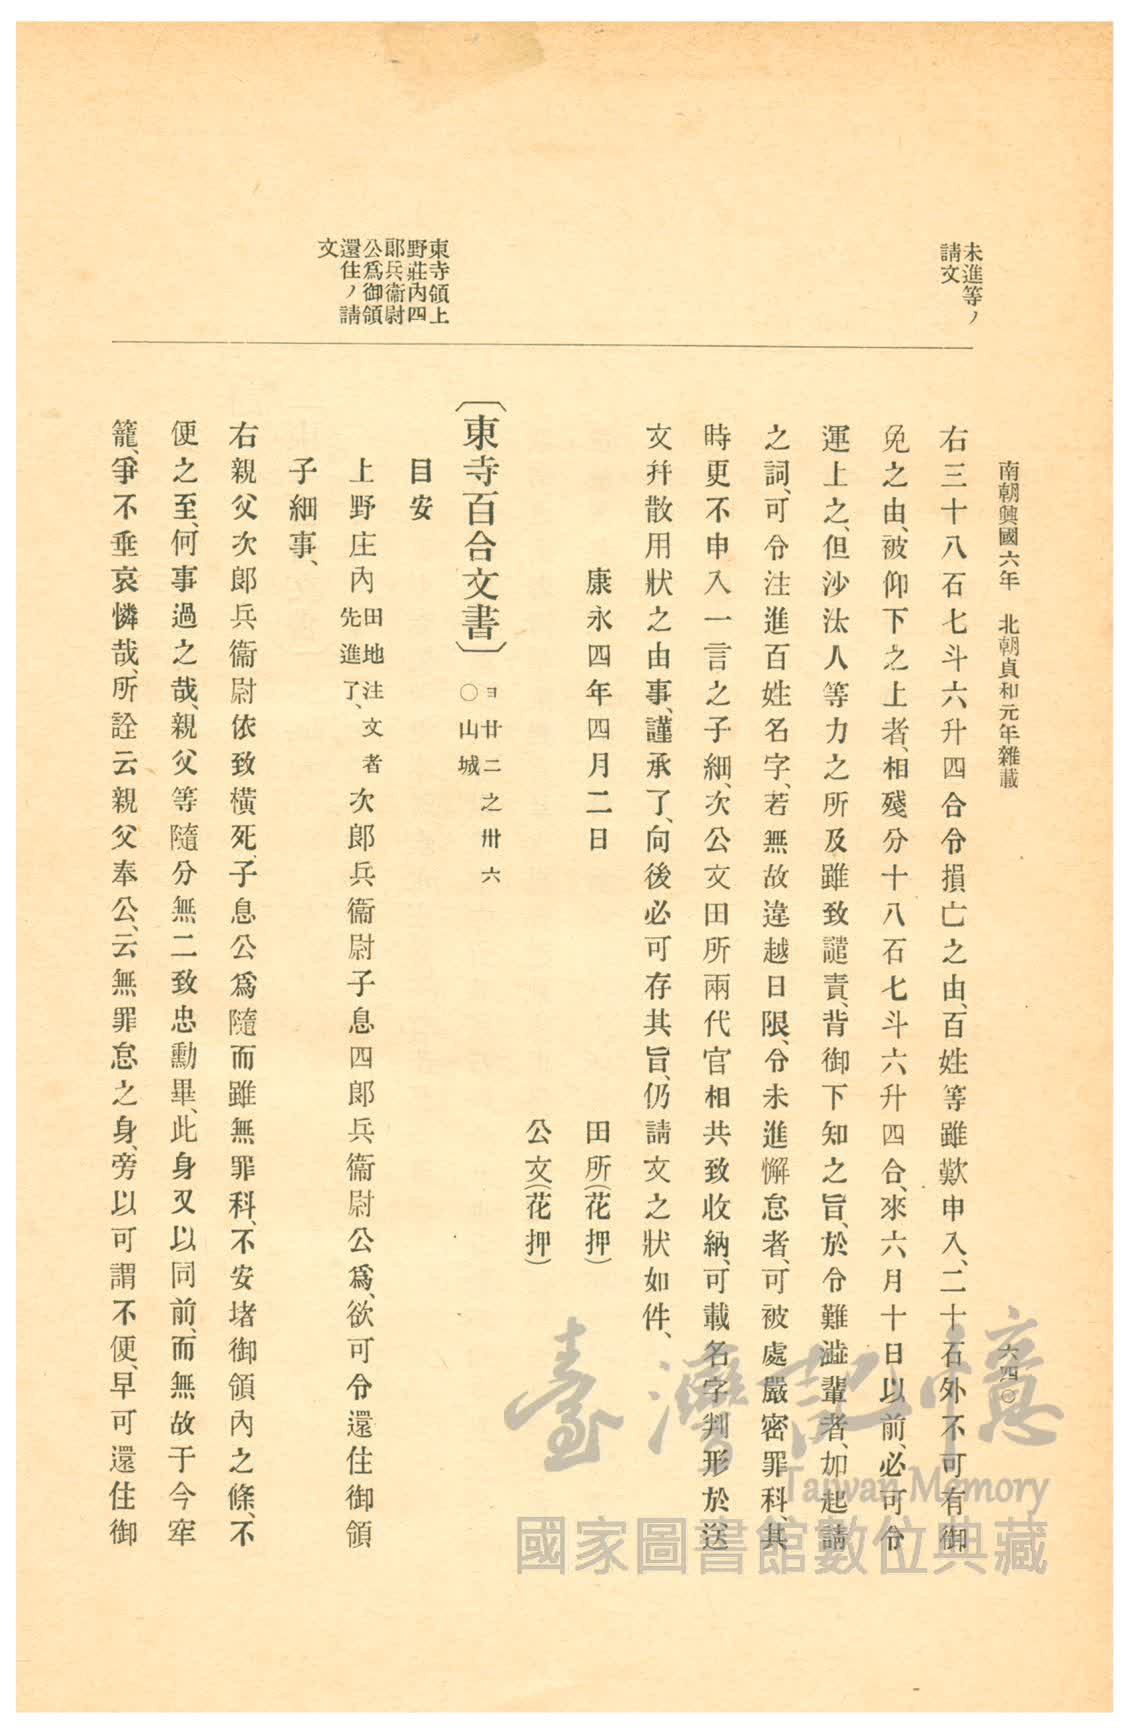 南朝興國六年　北朝貞和元年雜載
六四〇
未進等ノ
請文
右三十八石七斗六升四合令損亡之由、百姓等雖歎申入、二十石外不可有御
免之由、被仰下之上者、相殘分十八石七斗六升四合、來六月十日以前、必可令
運上之、但沙汰人等力之所及雖致譴責、背御下知之旨、於令難澁輩者、如起請
之詞、可令注進百姓名字、若無故違越日限、令未進懈怠者、可被處嚴密罪科、其
時更不申入一言之子細、次公文田所兩代官相共致收納、可載名字判形於送
文幷散用狀之由事、謹承了、向後必可存其旨、仍請文之狀如件、
康永四年四月二日
田所(花押)
公文(花押)
東寺領上
野莊內四
郎兵衞尉
公爲御領
還住ノ請
文
〔東寺百合文書〕
ヨ廿二之卅六
〇山城
目安
上野庄內
田地注文者
先進了、
次郎兵衞尉子息四郎兵衞尉公爲、欲可令還住御領
子細事、
右親父次郎兵衞尉依致橫死、子息公爲隨而雖無罪科、不安堵御領內之條、不
便之至、何事過之哉、親父等隨分無二致忠勳畢、此身又以同前、而無故于今牢
籠、爭不垂哀憐哉、所詮云親父奉公、云無罪怠之身、旁以可謂不便、早可還住御
臺灣記憶
Taiwan Memory
國家圖書館數位典藏